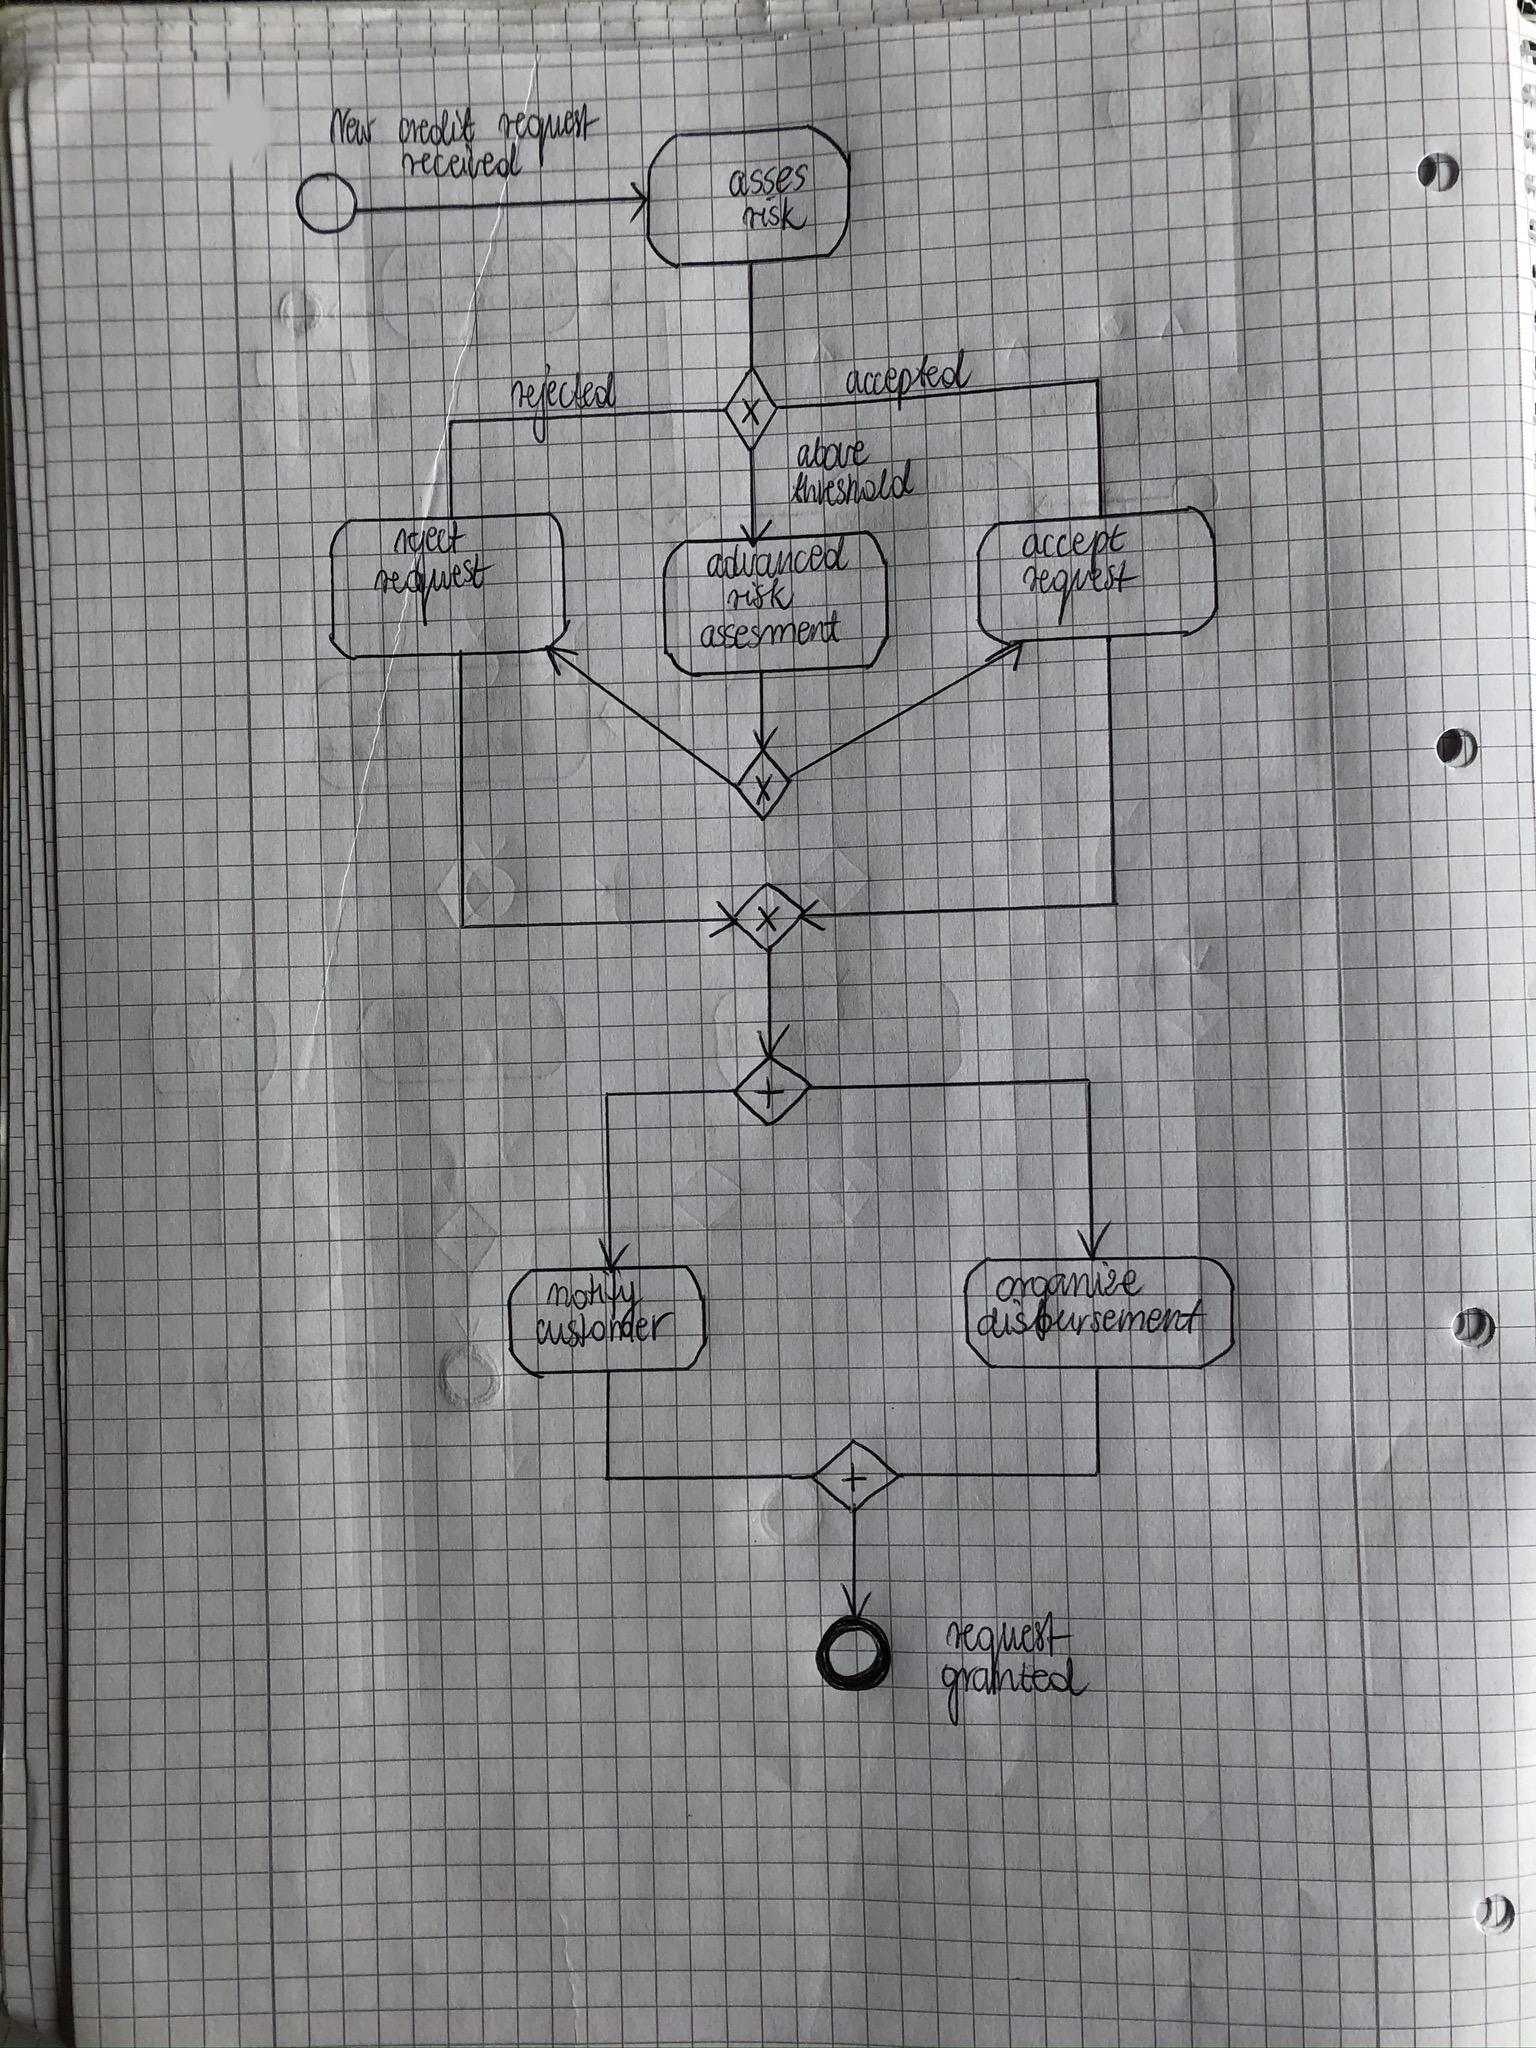 New credit request
received
asses
risk
rejected
accepted
above
threshold
reject
request
advanced
risk
assesment
accept
request
X
X
X
+
notify
customer
organize
disbursement
+
request
granted